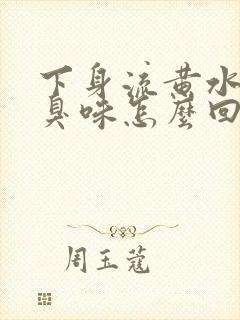 下身流黄水
臭味怎麽回
周玉蔻